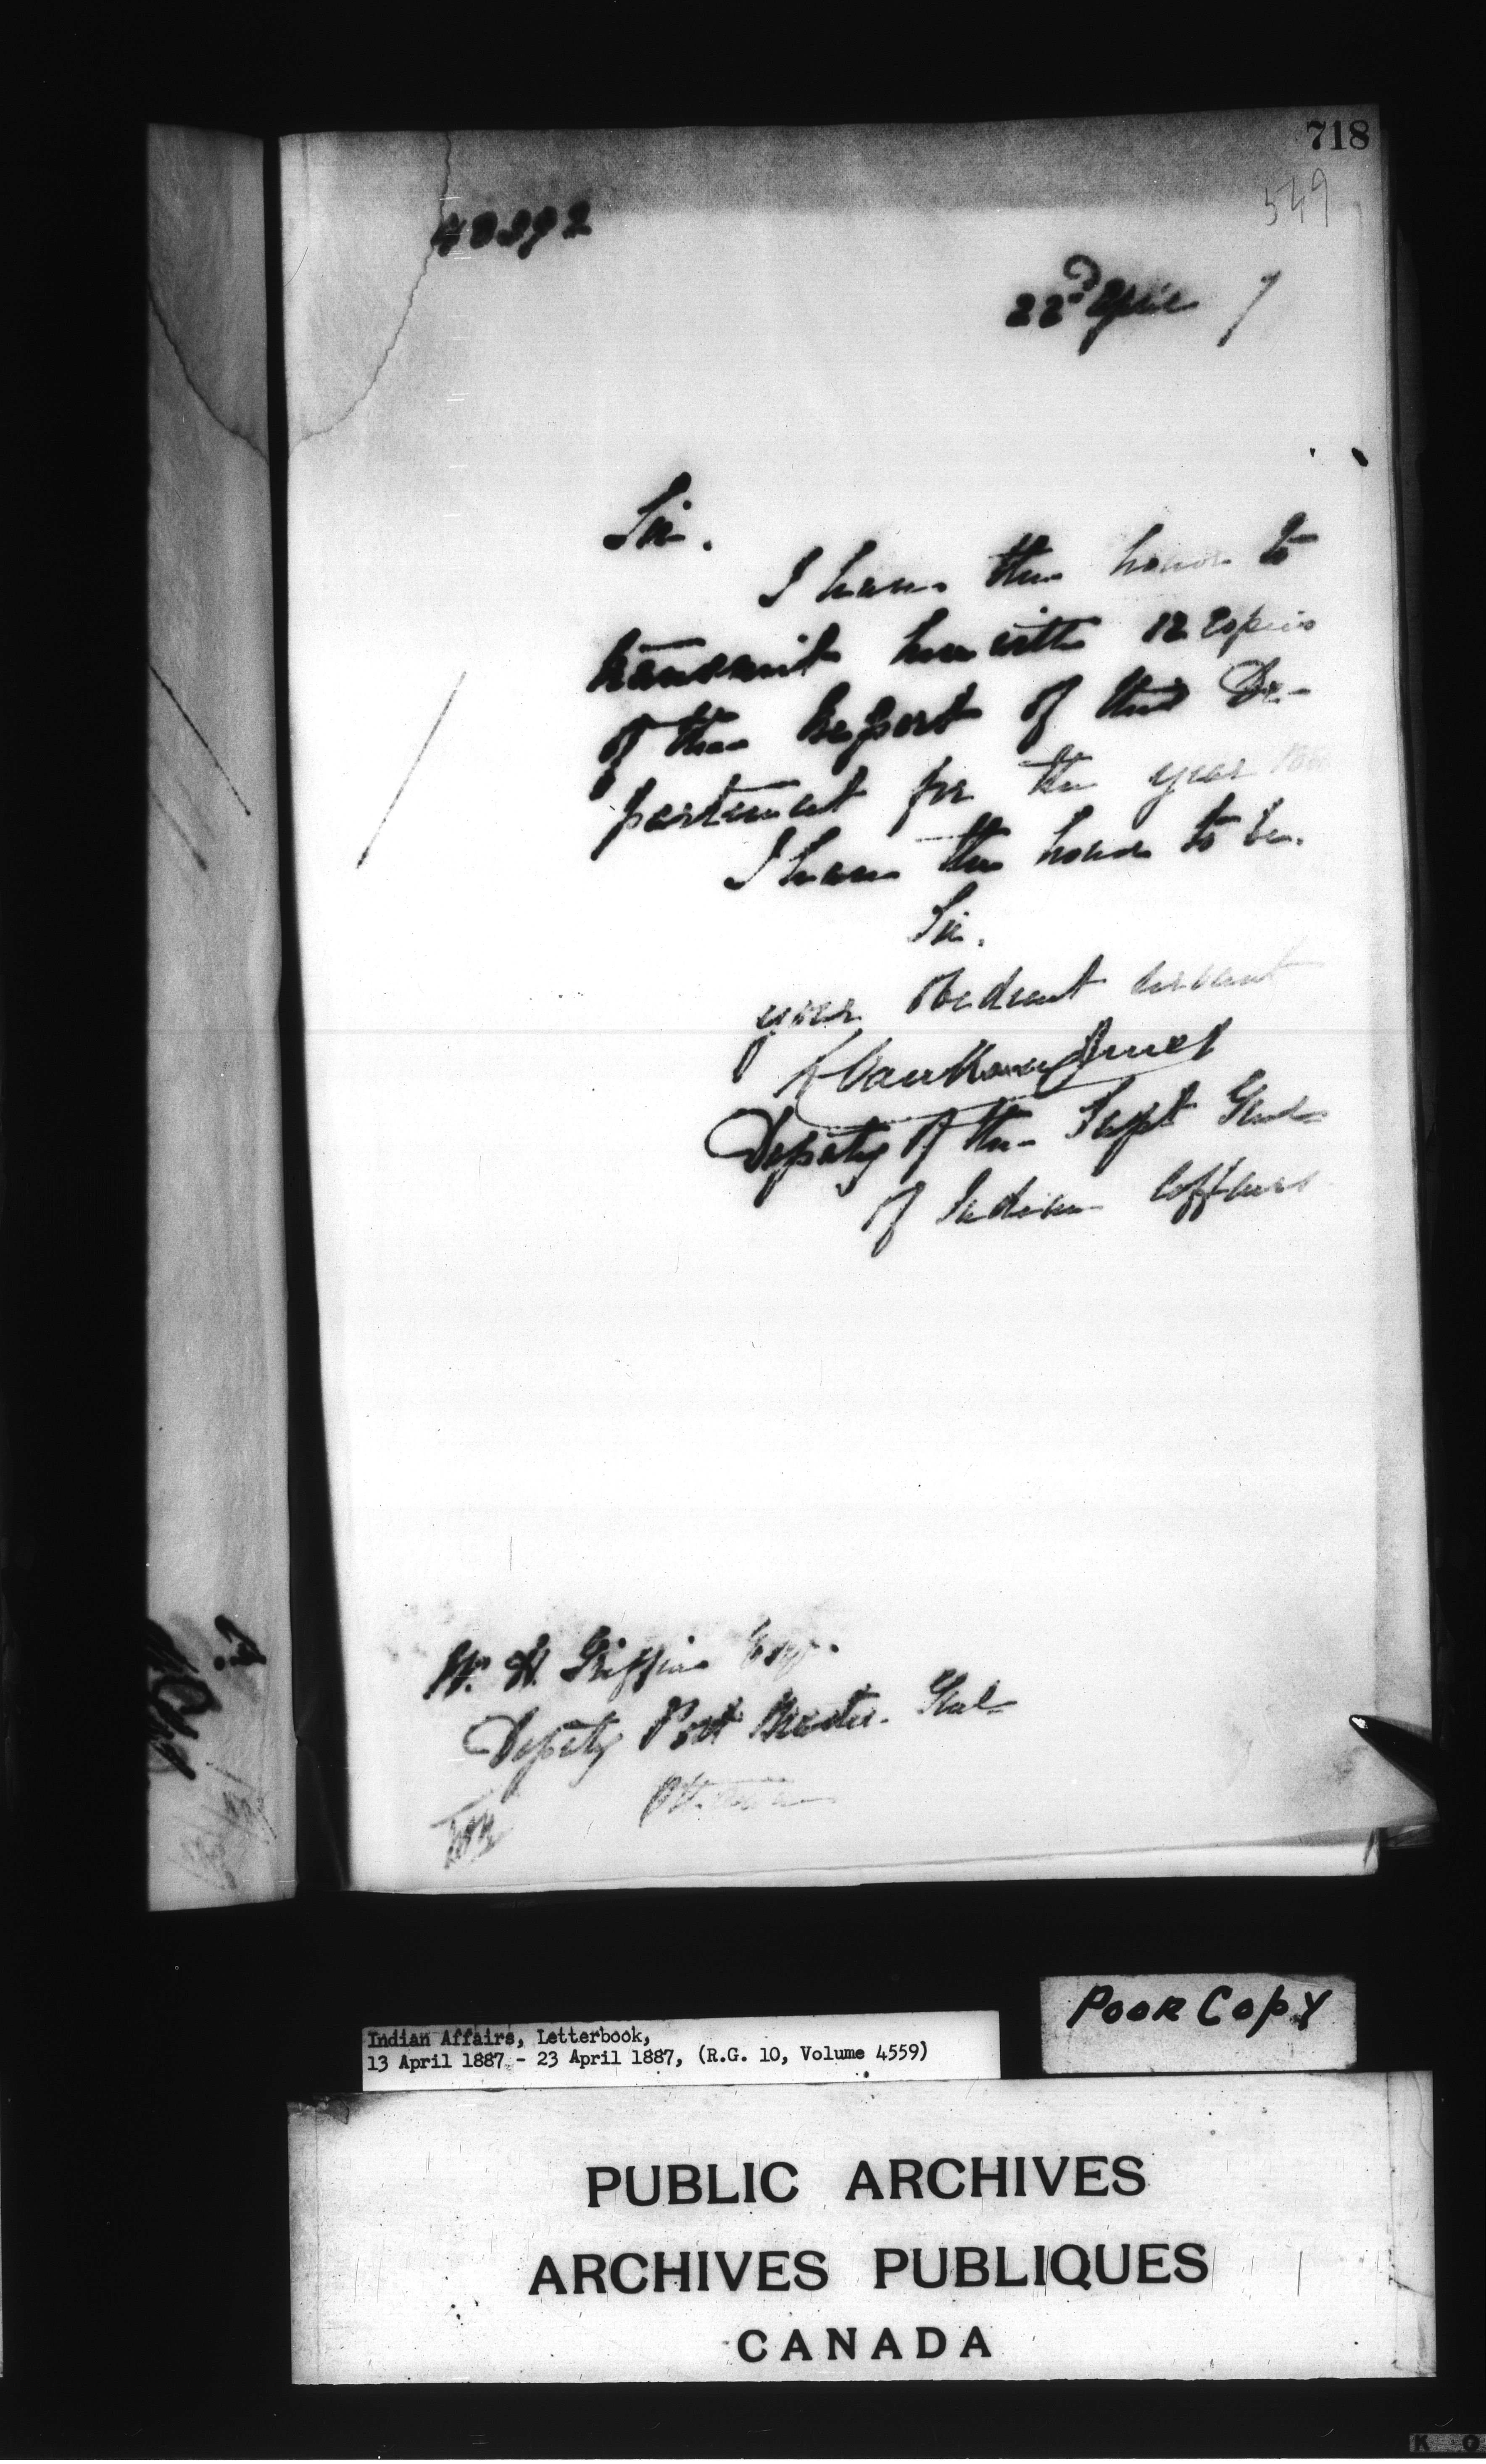 718
549
22nd April 7
Sir.
I have the honor to
transmit herewith 12 copies
of the Report of this De-
partment for the year
I have the honor to be.
Sir.
your obedient servant
L Vankoughnet
Deputy of the Supt Genl
of Indian Affairs
W. H. Griffin Esq.
Deputy Post Master Genl
Ottawa
POOR COPY
Indian Affairs, Letterbook,
13 April 1887 - 23 April 1887, (R.G. 10, Volume 4559)
PUBLIC ARCHIVES
ARCHIVES PUBLIQUES
CANADA